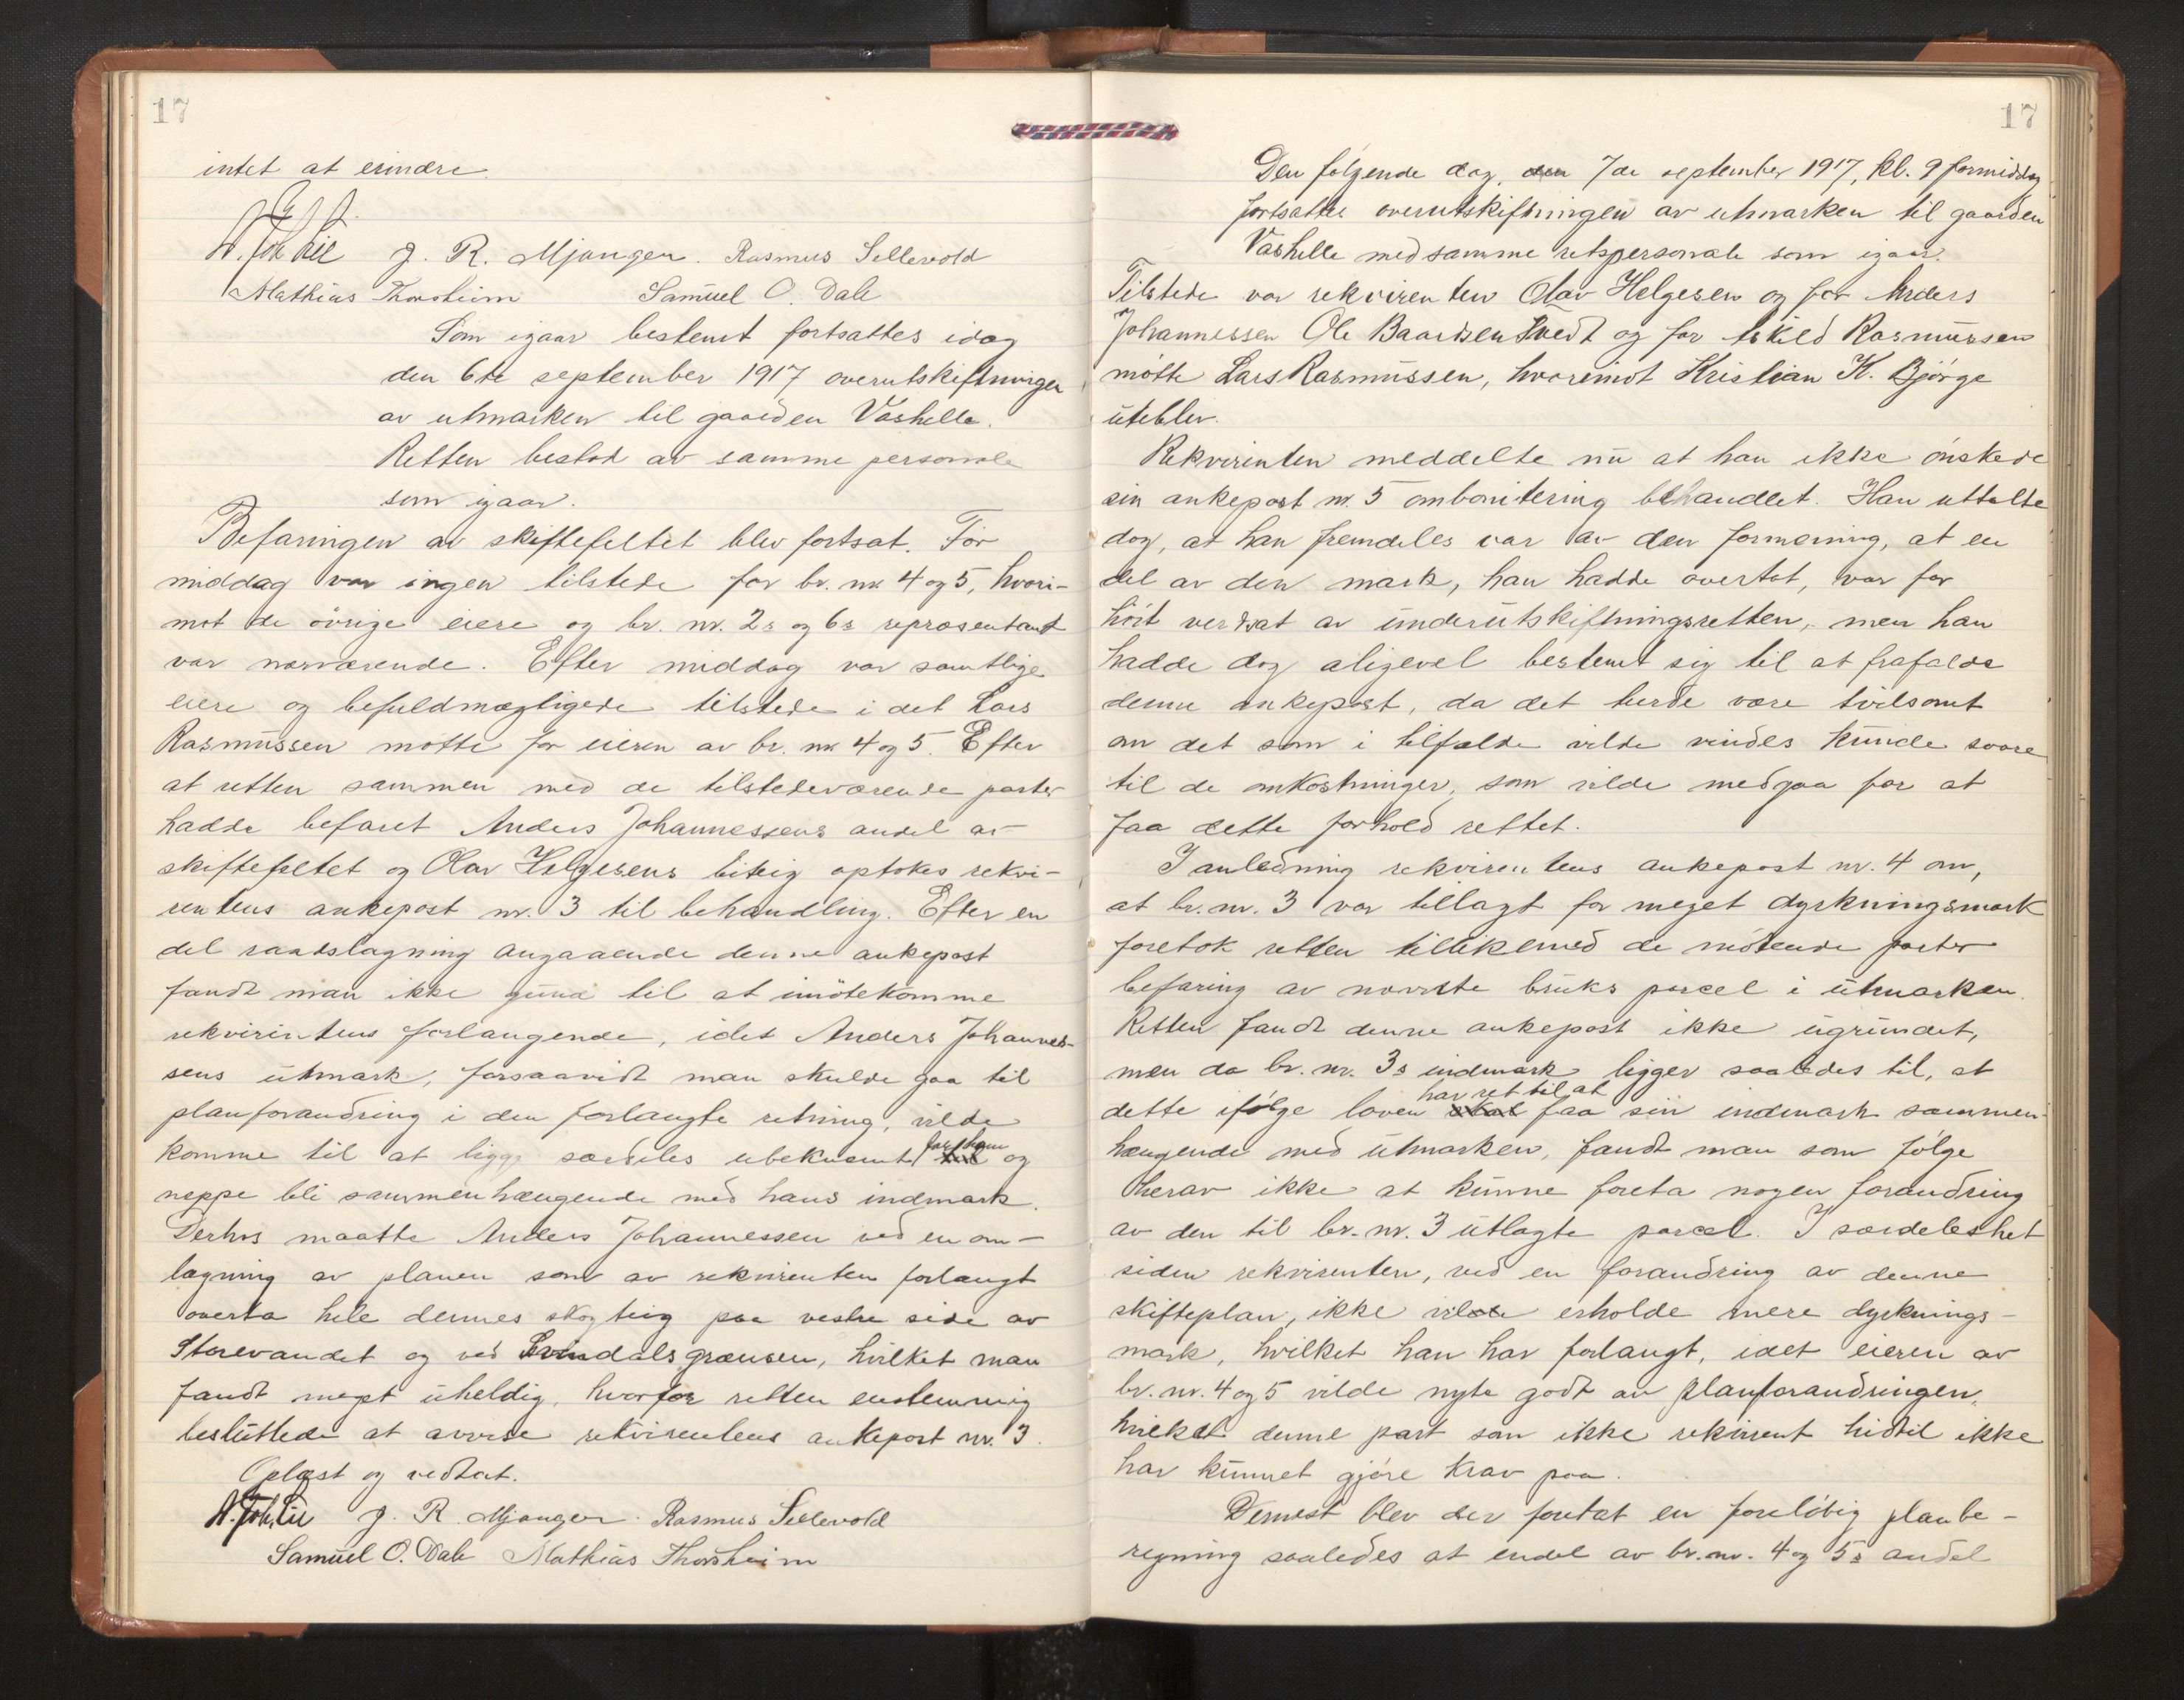 17
intet at erindre.
J. R. Mjanger. Rasmus Sellevold
Mathias Thorsheim Samuel O. Dale
Som igaar bestemt fortsattes idag
den 6te september 1917 overutskiftningen
av utmarken til gaarden Vashelle.
Retten bestod av samme personale
som igaar.
Befaringen av skiftefeltet blev fortsat. Før
middag var ingen tilstede for br. nr. 4 og 5, hvori-
mot de övrige eiere og br. nr. 2s og 6s repræsentant
var nærværende. Efter middag var samtlige
eiere og befuldmægtigede tilstede i det Lars
Rasmussen møtte for eieren av br. nr. 4 og 5. Efter
at retten sammen med de tilstedeværende parter
hadde befaret Anders Johannessens andel av
skiftefeltet og Olav Helgesens liteig optokes rekvi-
rentens ankepost nr. 3 til behandling. Efter en
del raadslagning angaaende denne ankepost
fandt man ikke grund til at imötekomme
rekvirentens forlangende, idet Anders Johannes-
sens utmark, forsaavidt man skulde gaa til
planforandring i den forlangte retning, vilde
komme til at ligge særdeles ubekvemt for ham og
neppe bli sammenhængende med hans indmark.
Derhos maatte Anders Johannessen ved en om-
lægning av planen som av rekvirenten forlangt
overta hele dennes skogteig paa vestre side av
Storevandet og ved dalsgrænsen, hvilket man
fandt meget uheldig, hvorfor retten enstemmig
besluttede at avvise rekvirentens ankepost nr. 3.
Oplæst og vedtat.
J. R. Mjanger. Rasmus Sellevold
Samuel O. Dale Mathias Thorsheim
17
Den følgende dag, den 7de september 1917, kl. 9 formiddag
fortsattes overutskiftningen av utmarken til gaarden
Vashelle med samme retspersonale som igaar.
Tilstede var rekvirenten Olav Helgesen og for Anders
Johannessen Ole Baardsen Tvedt og for Eskild Rasmussen
mötte Lars Rasmussen, hvorimot Kristian K. Bjørge
uteblev.
Rekvirenten meddelte nu at han ikke önskede
sin ankepost nr. 5 ombonitering behandlet. Han uttalte
dog, at han fremdeles var av den formening, at en
del av den mark, han hadde overtat, var for
höit verdsat av underutskiftningsretten, men han
hadde dog aligevel bestemt sig til at frafalde
denne ankepost, da det turde være tvilsomt
om det som i tilfælde vilde vindes kunde svare
til de omkostninger, som vilde medgaa for at
faa dette forhold rettet.
I anledning rekvirentens ankepost nr. 4 om,
at br. nr. 3 var tillagt for meget dyrkningsmark
foretok retten tillikemed de mötende parter
befaring av nævnte bruks parcel i utmarken.
Retten fandt denne ankepost ikke ugrundet,
men da br. nr. 3s indmark ligger saaledes til, at
dette ifølge loven har ret til at faa sin indmark sammen-
hængende med utmarken, fandt man som følge
herav ikke at kunne foreta nogen forandring
av den til br. nr. 3 utlagte parcel. I særdeleshet
siden rekvirenten, ved en forandring av denne
skifteplan, ikke vilde erholde mere dyrknings-
mark, hvilket han har forlangt, idet eieren av
br. nr. 4 og 5 vilde nyte godt av planforandringen,
hvilket denne part som ikke rekvirent hidtil ikke
har kunnet gjöre krav paa.
Dernest blev der foretat en foreløbig planbe-
regning saaledes at endel av br. nr. 4 og 5s andel